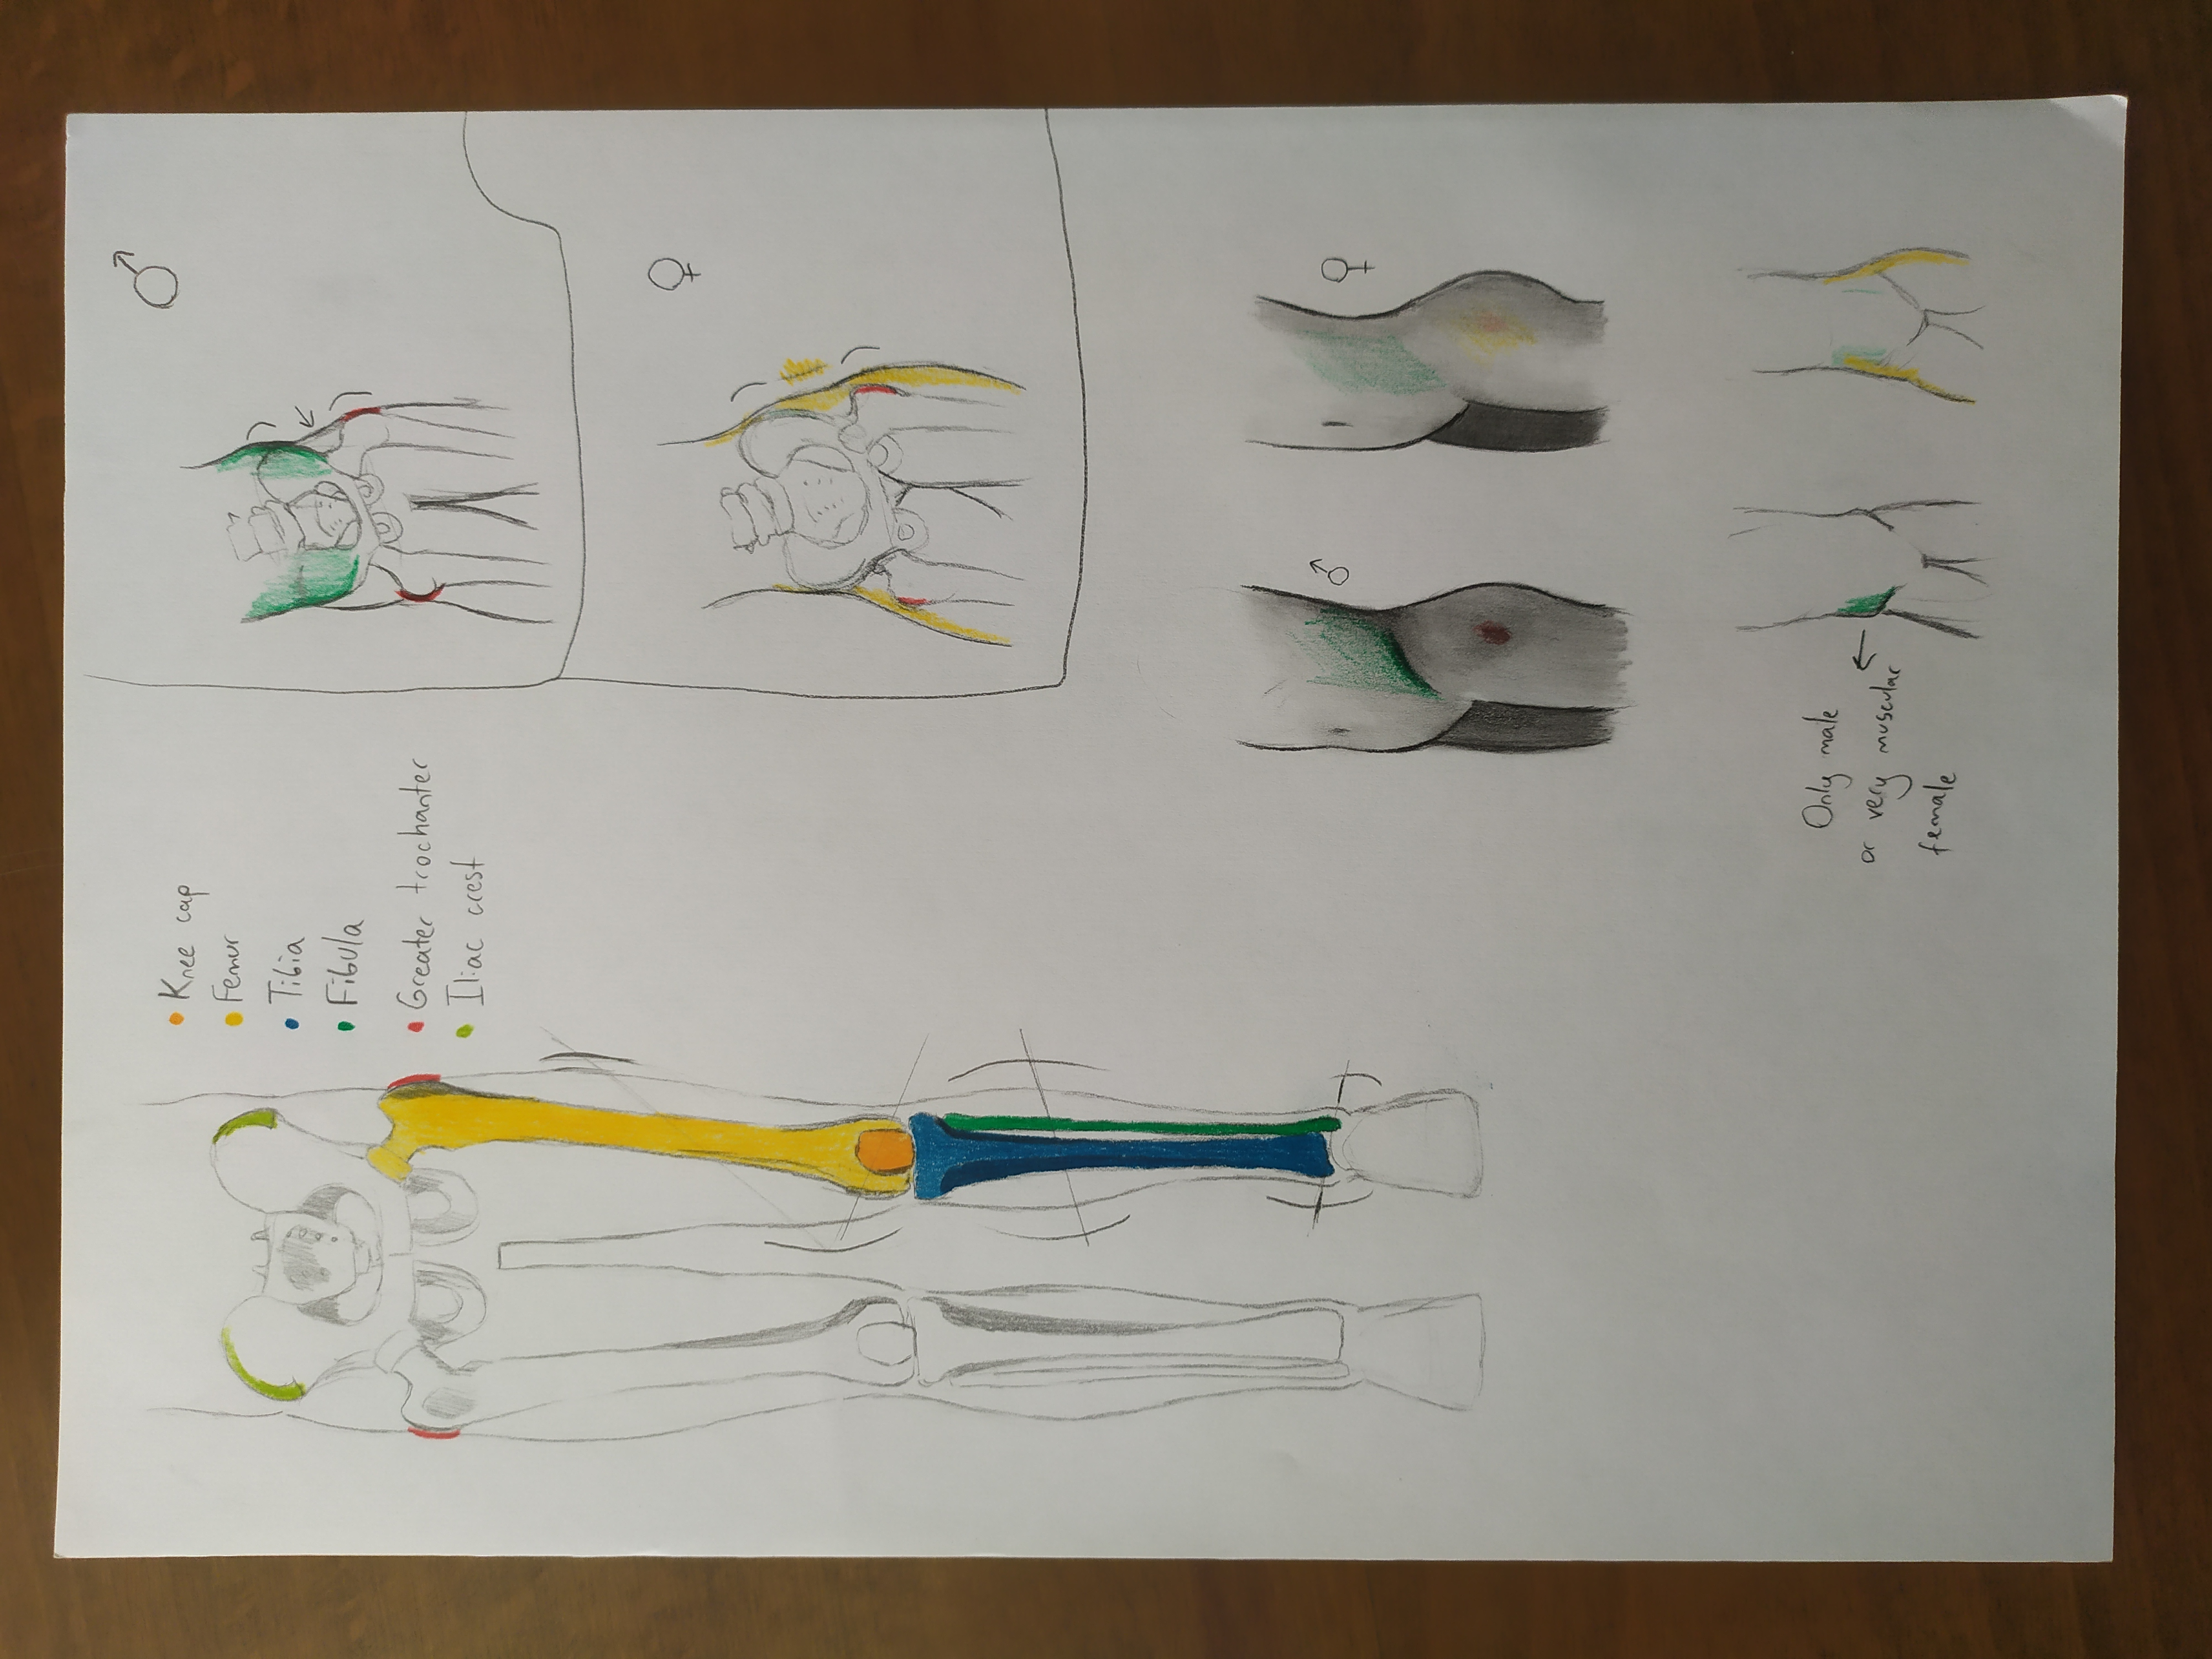 Knee cap
Femur
Tibia
Fibula
Greater trochanter
Iliac crest
♂
♀
♂
♀
Only male
or very muscular
female